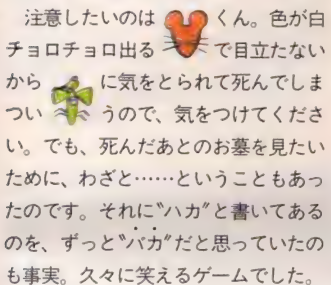 注意したいのは くん。色が白
チョロチョロ出る で目立たない
から に気をとられて死んでしま
つい うので、気をつけてくださ
い。でも、死んだあとのお墓を見たい
ために、わざと……ということもあっ
たのです。それに〝ハカ〟と書いてある
のを、ずっと〝バカ〟だと思っていたの
も事実。久々に笑えるゲームでした。